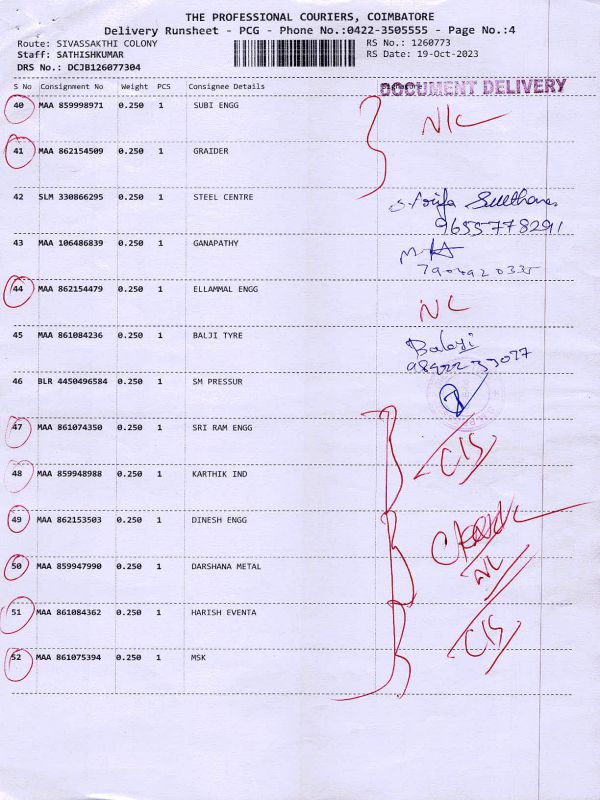 THE PROFESSIONAL COURIERS, COIMBATORE
Delivery Runsheet - PCG - Phone No.:0422-3505555 - Page No.:4
Route: SIVASSAKTHI COLONY RS No.: 1260773
Staff: SATHISHKUMAR RS Date: 19-Oct-2023
DRS No.: DCJB126077304
S No Consignment No Weight PCS Consignee Details DOCUMENT DELIVERY
40 MAA 859998971 0.250 1 SUBI ENGG
N/C
41 MAA 862154509 0.250 1 GRAIDER
42 SLM 330866295 0.250 1 STEEL CENTRE
9655778291
43 MAA 106486839 0.250 1 GANAPATHY
44 MAA 862154479 0.250 1 ELLAMMAL ENGG
NC
45 MAA 861084236 0.250 1 BALJI TYRE
Balaji
46 BLR 4450496584 0.250 1 SM PRESSUR
47 MAA 861074350 0.250 1 SRI RAM ENGG
C/S
48 MAA 859948988 0.250 1 KARTHIK IND
49 MAA 862153503 0.250 1 DINESH ENGG
50 MAA 859947990 0.250 1 DARSHANA METAL
NC
51 MAA 861084362 0.250 1 HARISH EVENTA
C/S
52 MAA 861075394 0.250 1 MSK